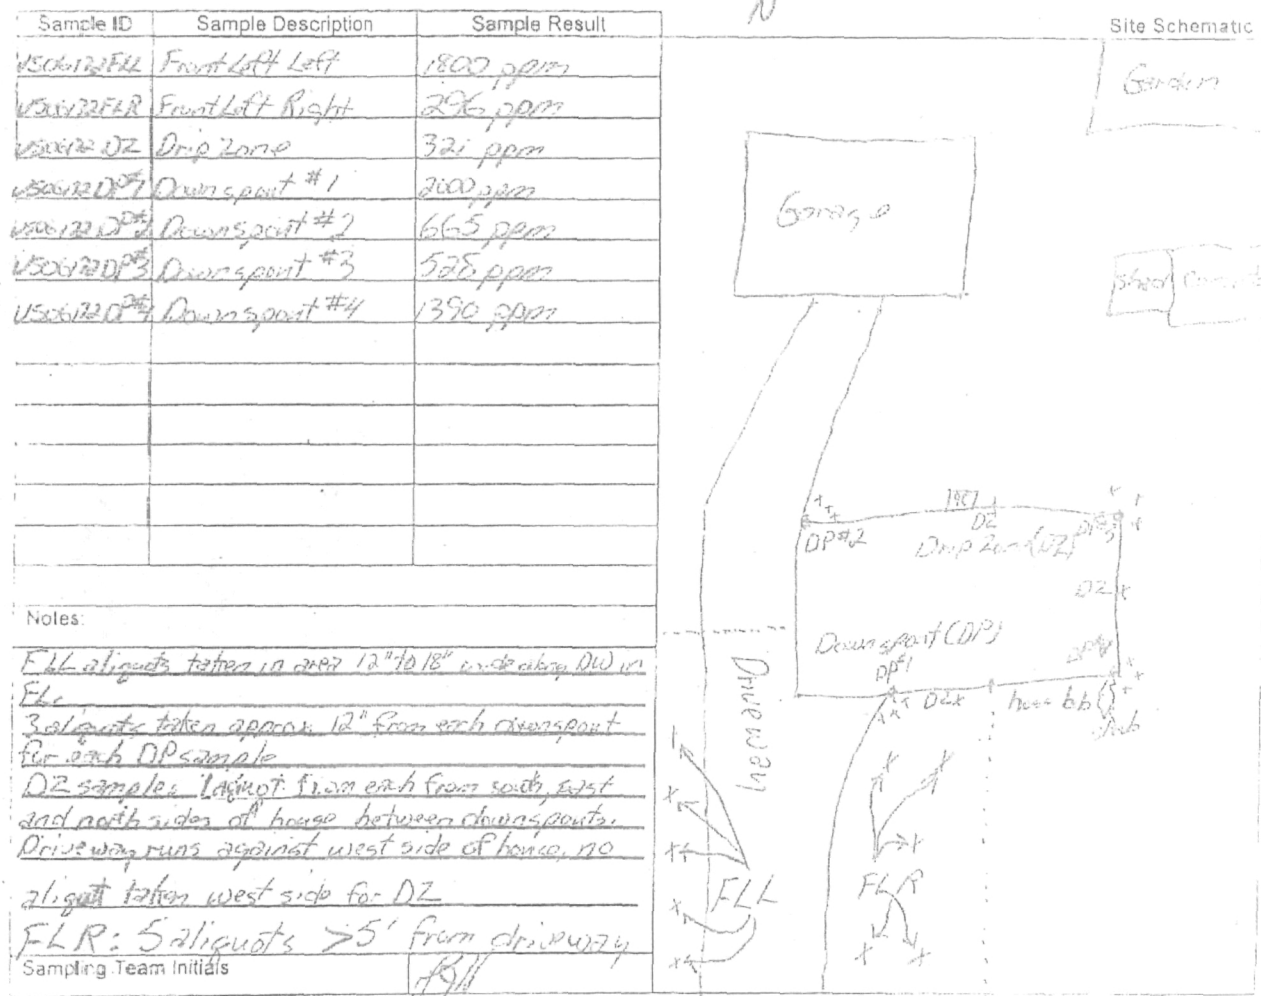 N
Sample ID Sample Description Sample Result
Front Left Left 1800 ppm
Front Left Right 296 ppm
Drip Zone 321 ppm
Downspout #1 2000 ppm
Downspout #2 665 ppm
Downspout #3 528 ppm
Downspout #4 1390 ppm
Notes:
FLL aliquots taken in area 12" to 18" wide along DW in
FL.
3 aliquots taken approx. 12" from each downspout
for each DP sample
DZ sample: 1 aliquot from each from south, east
and north sides of house between downspouts.
Driveway runs against west side of house, no
aliquot taken west side for DZ
FLR: 5 aliquots >5' from driveway
Sampling Team Initials
Site Schematic
Garden
Garage
Shed
DP#2
DZ
Drip Zone (DZ)
DP#3
DZ
Downspout (DP)
DP#1
DZ
DP#4
hose bib
Driveway
FLL
FLR